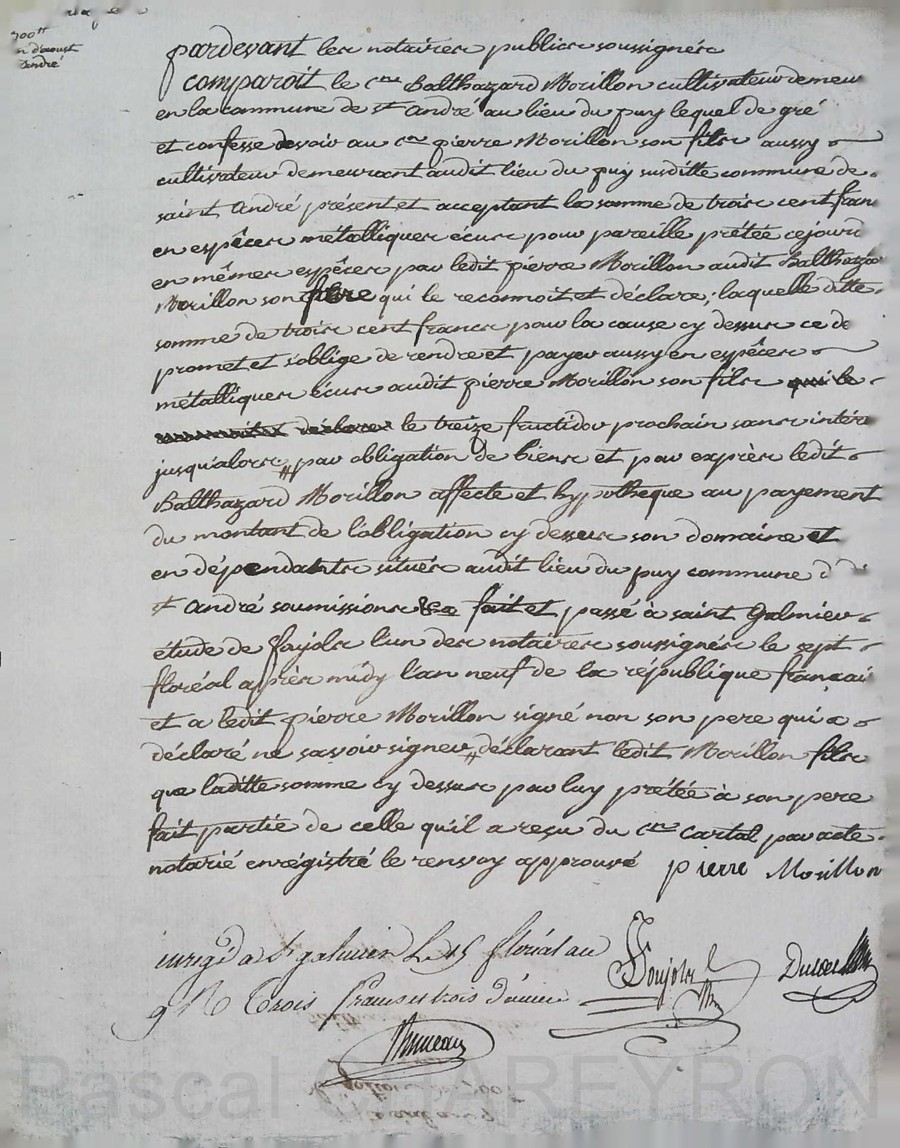 300#
n d'aoust
André
pardevant les notaires publics soussignés
comparoit le Cen Balthazard Morillon cultivateur demeur
en la commune de st André au lieu du puy lequel de gré
et confesse devoir au Cen pierre Morillon son fils aussy
cultivateur demeurant audit lieu du puy susditte commune de
saint André présent et acceptant la somme de trois cent fran
en espêces métalliques écus pour pareille prétée cejourd
en mêmes espêces par ledit pierre Morillon audit Balthaza
Morillon son père qui le reconnoit et déclare; laquelle ditte
somme de trois cent francs pour la cause cy dessus ce de
promet et s'oblige de rendre et payer aussy en espêces
métalliques écus audit pierre Morillon son fils qui le
déclare le treize fructidor prochain sans intére
jusqu'alors # par obligation de biens et par exprès ledit
Balthazard Morillon affecte et hypotheque au payement
du montant de l'obligation cy dessus son domaine et
en dépendants situés audit lieu du puy commune d
st André soumissions &a fait et passé à saint Galmier
étude de fajols l'un des notaires soussignés le sept
floréal après midy l'an neuf de la république françai
et a ledit pierre Morillon signé non son pere qui a
déclaré ne savoir signer # déclarant ledit Morillon fils
que laditte somme cy dessus par luy prétée à son pere
fait partie de celle qu'il a reçu du Cen Cartal par acte
notarié enrégistré le renvoy approuvé pierre Morillon
enregé a St galmier le 15 floréal an
9 R Trois francs et trois décimes